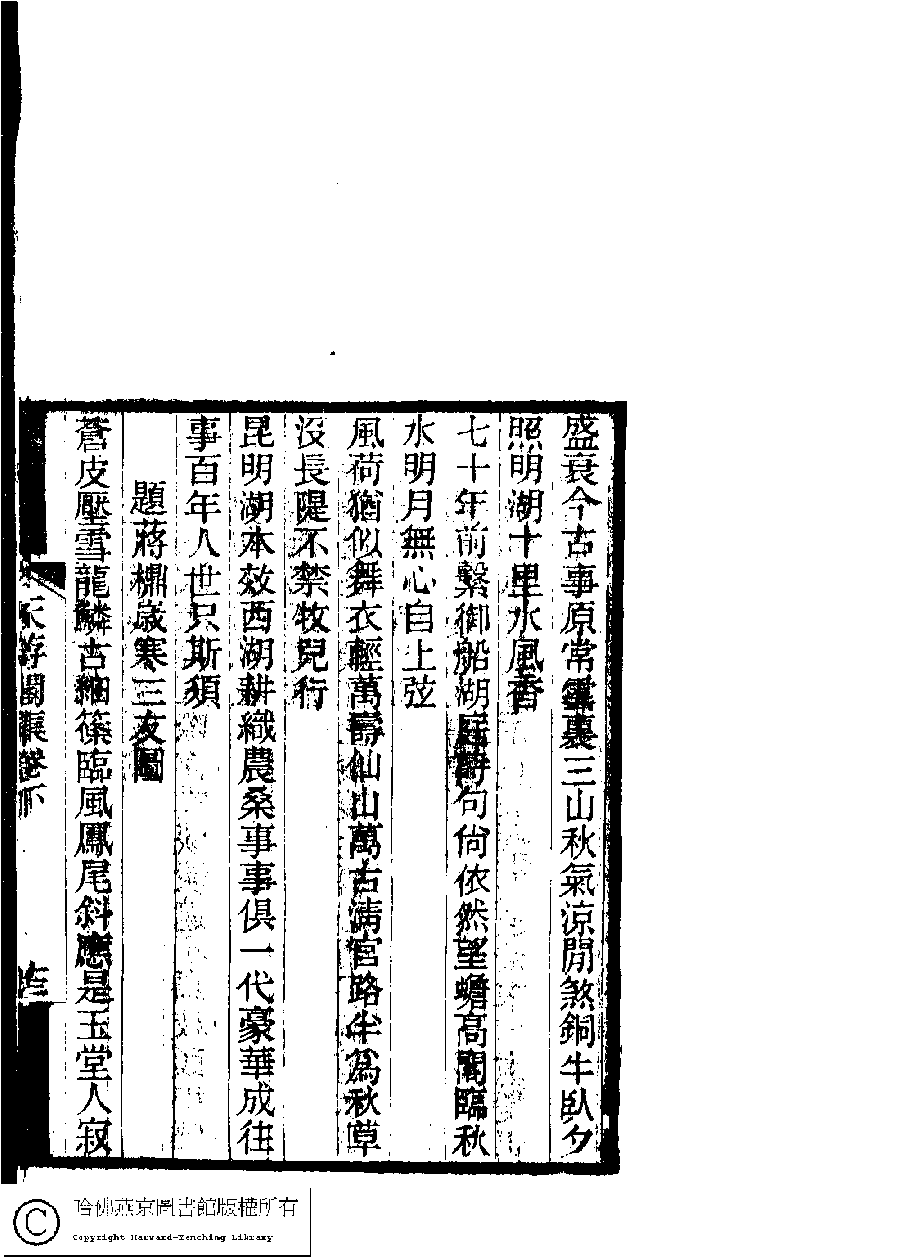 盛衰今古事原常雲裏三山秋氣涼閒煞銅牛臥夕
照明湖十里水風香
七十年前繫御船湖庭詩句尚依然望蟾高閣臨秋
水明月無心自上弦
風荷猶似舞衣輕萬壽仙山萬古清官路半爲秋草
沒長隄不禁牧兒行
昆明湖本效西湖耕織農桑事事俱一代豪華成往
事百年人世只斯須
題蔣檙歲寒三友圖
蒼皮壓雪龍鱗古細篠臨風鳳尾斜應是玉堂人寂
天游閣集卷下
哈佛燕京圖書館版權所有
Copyright Harvard-Yenching Library